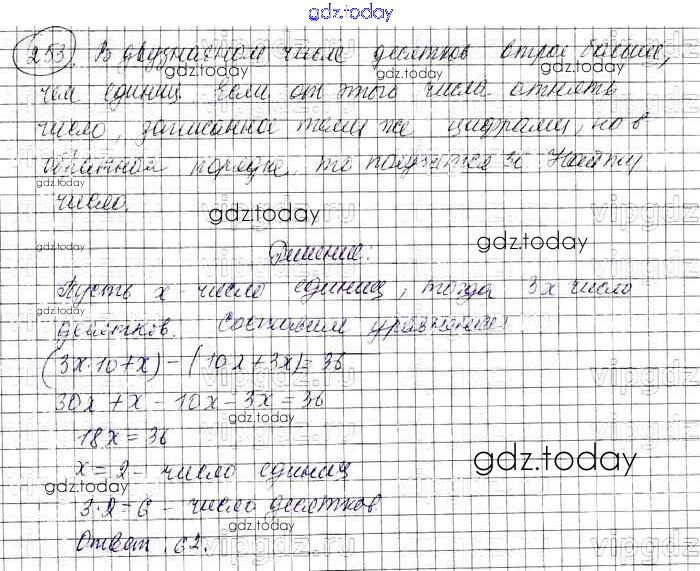 gdz.today
253. В двузначном числе десятков втрое больше,
чем единиц. Если от этого числа отнять
число, записанное теми же цифрами, но в
обратном порядке, то получится 36 Найти
число.
Решение:
Пусть x число единиц, тогда 3x число
десятков. Составим уравнение:
(3x·10+x)-(10x+3x)=36
30x+x-10x-3x=36
18x=36
x=2- число единиц
3·2=6- число десятков
Ответ. 62.
gdz.today
gdz.today
gdz.today
gdz.today
gdz.today
gdz.today
gdz.today
gdz.today
gdz.today
gdz.today
gdz.today
gdz.today
gdz.today
vipgdz.ru